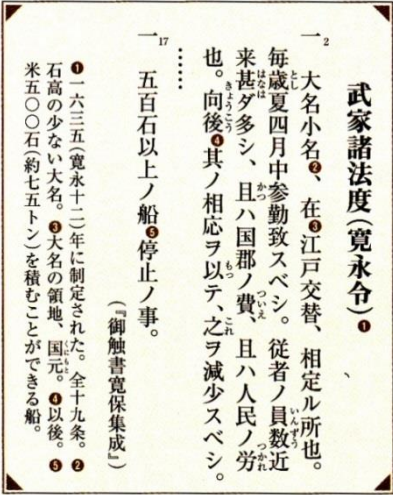 武家諸法度(寛永令)❶
一2 大名小名❷、在❸江戸交替、相定ル所也。
毎歳夏四月中参勤致スベシ。従者ノ員数近
来甚ダ多シ、且ハ国郡ノ費、且ハ人民ノ労
也。向後❹其ノ相応ヲ以テ、之ヲ減少スベシ。
……
一17 五百石以上ノ船❺停止ノ事。
(『御触書寛保集成』)
❶一六三五(寛永十二)年に制定された。全十九条。❷
石高の少ない大名。❸大名の領地、国元。❹以後。❺
米五〇〇石(約七五トン)を積むことができる船。